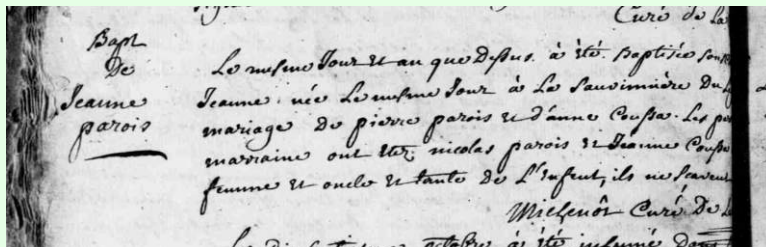 Curé de la
Bapt
De
Jeanne
parois
Le mesme Jour et an que Dessus à été Baptisée sous
Jeanne née Le mesme Jour à La Sauvinnère Du
mariage De pierre parois et d'anne Coussa. Les
marraine ont étez nicolas parois et Jeanne Coussa
femme et oncle et tante De L'enfent, ils ne scavent
Michenôt Curé De
octobre à été inhumé dans